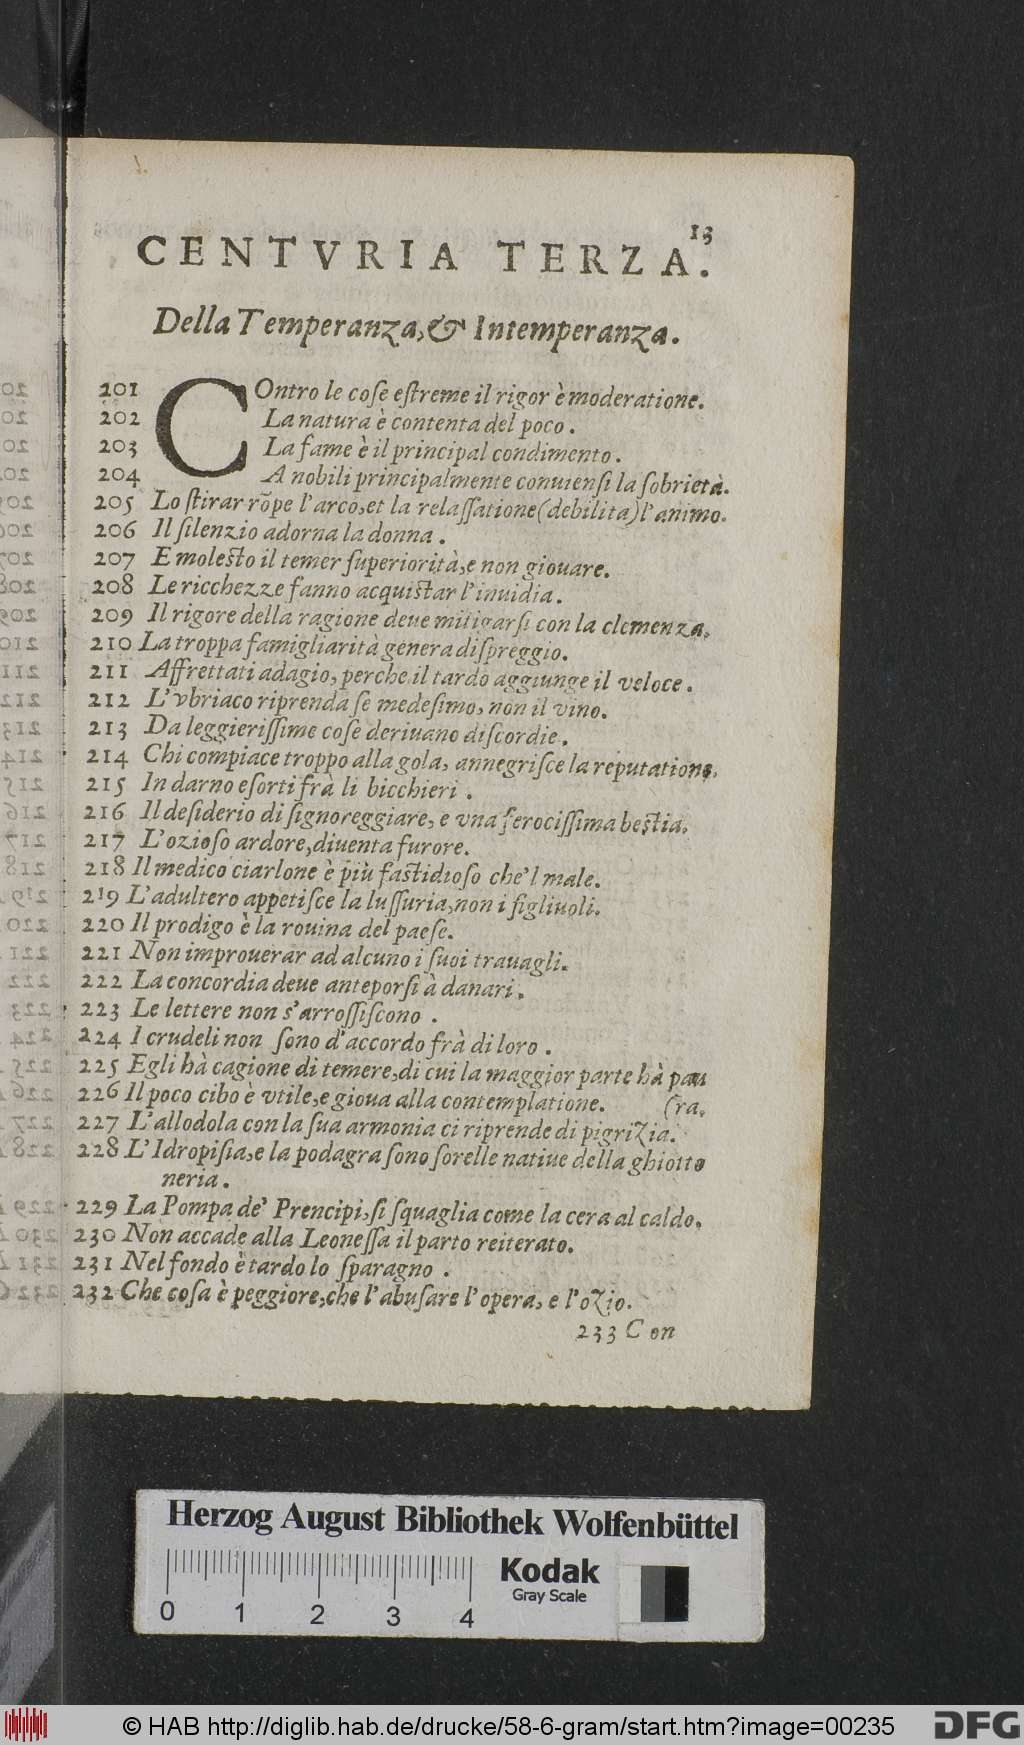 13
CENTVRIA TERZA.
Della Temperanza, & Intemperanza.
201 COntro le cose estreme il rigor è moderatione.
202 La natura è contenta del poco.
203 La fame è il principal condimento.
204 A nobili principalmente conuiensi la sobrietà.
205 Lo stirar rõpe l'arco, et la relassatione (debilita) l'animo.
206 Il silenzio adorna la donna.
207 E molesto il temer superiorità, e non giouare.
208 Le ricchezze fanno acquistar l'inuidia.
209 Il rigore della ragione deue mitigarsi con la clemenza.
210 La troppa famigliarità genera dispreggio.
211 Affrettati adagio, perche il tardo aggiunge il veloce.
212 L'vbriaco riprenda se medesimo, non il vino.
213 Da leggierissime cose deriuano discordie.
214 Chi compiace troppo alla gola, annegrisce la reputatione.
215 In darno esorti frà li bicchieri.
216 Il desiderio di signoreggiare, e vna ferocissima bestia.
217 L'ozioso ardore, diuenta furore.
218 Il medico ciarlone è più fastidioso che'l male.
219 L'adultero appetisce la lussuria, non i figliuoli.
220 Il prodigo è la rouina del paese.
221 Non improuerar ad alcuno i suoi trauagli.
222 La concordia deue anteporsi à danari.
223 Le lettere non s'arrossiscono.
224 I crudeli non sono d'accordo frà di loro.
225 Egli hà cagione di temere, di cui la maggior parte hà pau
226 Il poco cibo è vtile, e gioua alla contemplatione. (ra.
227 L'allodola con la sua armonia ci riprende di pigrizia.
228 L'Idropisia, e la podagra sono sorelle natiue della ghiotto
neria.
229 La Pompa de' Prencipi, si squaglia come la cera al caldo.
230 Non accade alla Leonessa il parto reiterato.
231 Nel fondo è tardo lo sparagno.
232 Che cosa è peggiore, che l'abusare l'opera, e l'ozio.
233 Con
Herzog August Bibliothek Wolfenbüttel
Kodak
Gray Scale
0 1 2 3 4
© HAB http://diglib.hab.de/drucke/58-6-gram/start.htm?image=00235
DFG